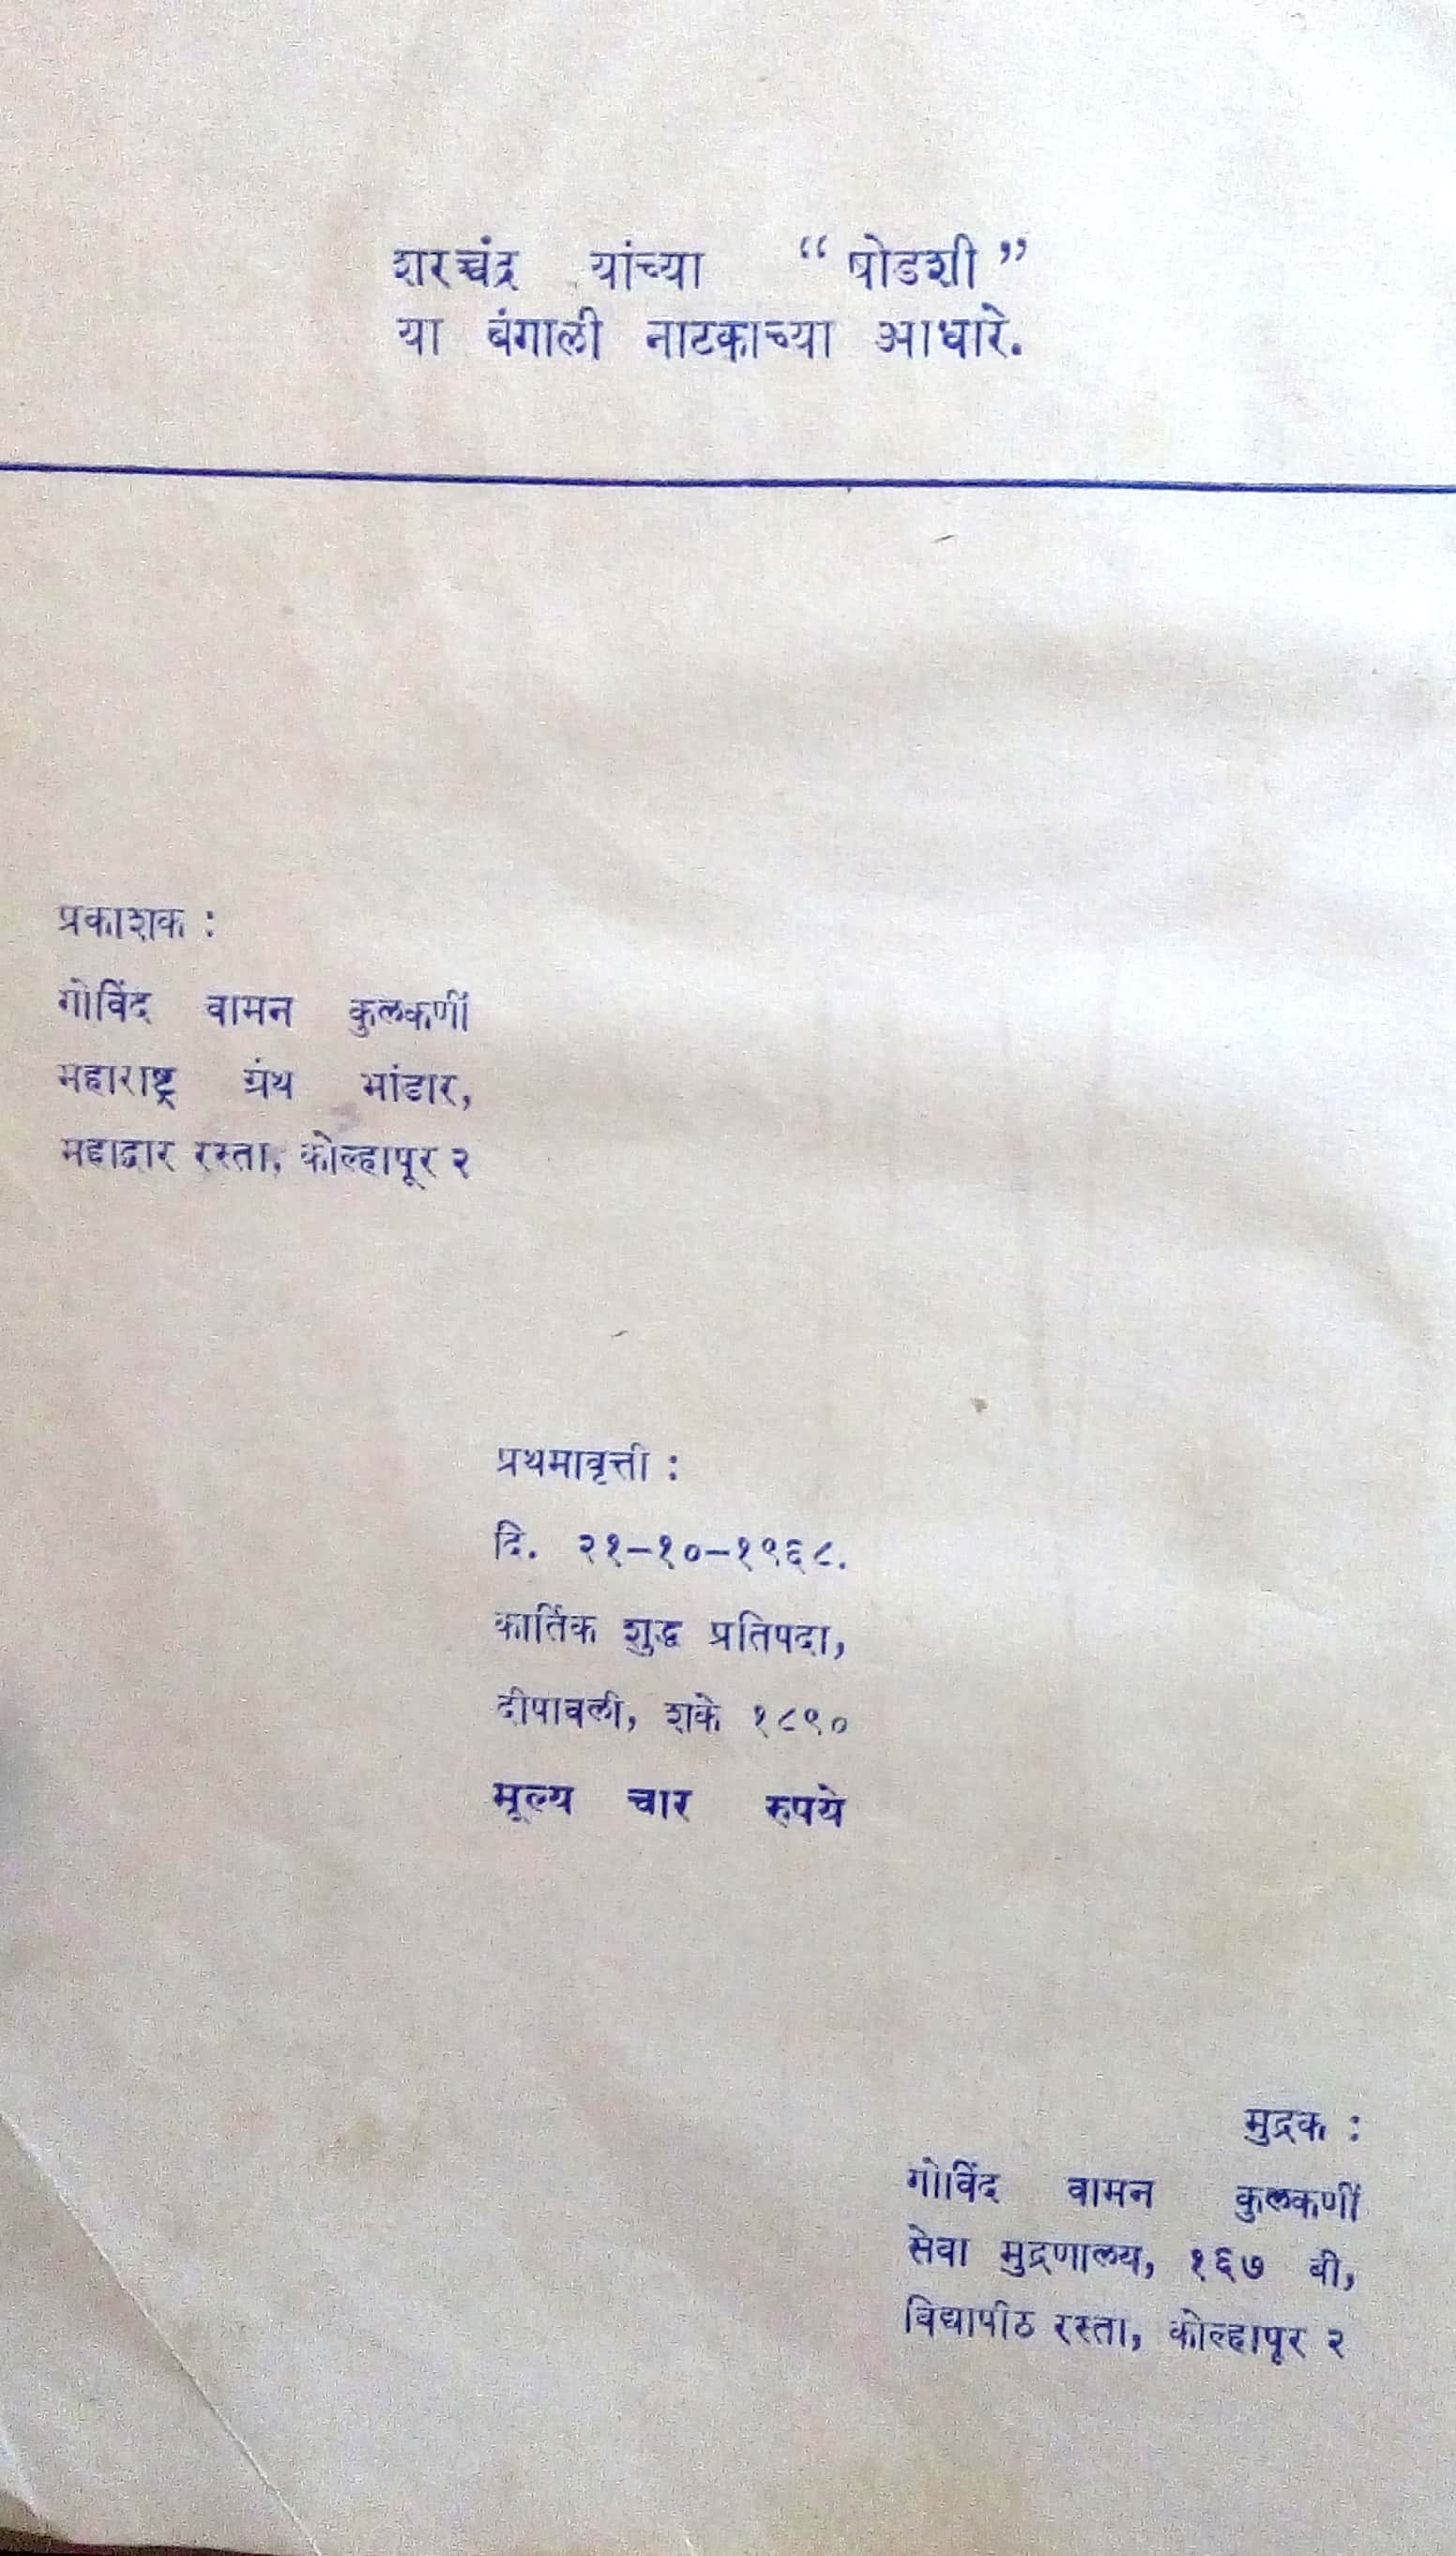 शरच्चंद्र यांच्या “षोडशी”
या बंगाली नाटकाच्या आधारे.
प्रकाशक :
गोविंद वामन कुलकर्णी
महाराष्ट्र ग्रंथ भांडार,
महाद्वार रस्ता, कोल्हापूर २
प्रथमावृत्ती :
दि. २१–१०–१९६८.
कार्तिक शुद्ध प्रतिपदा,
दीपावली, शके १८९०
मूल्य चार रुपये
मुद्रक :
गोविंद वामन कुलकर्णी
सेवा मुद्रणालय, १६७ बी,
विद्यापीठ रस्ता, कोल्हापूर २